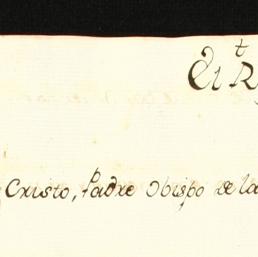 Cristo, Padre Obispo de la